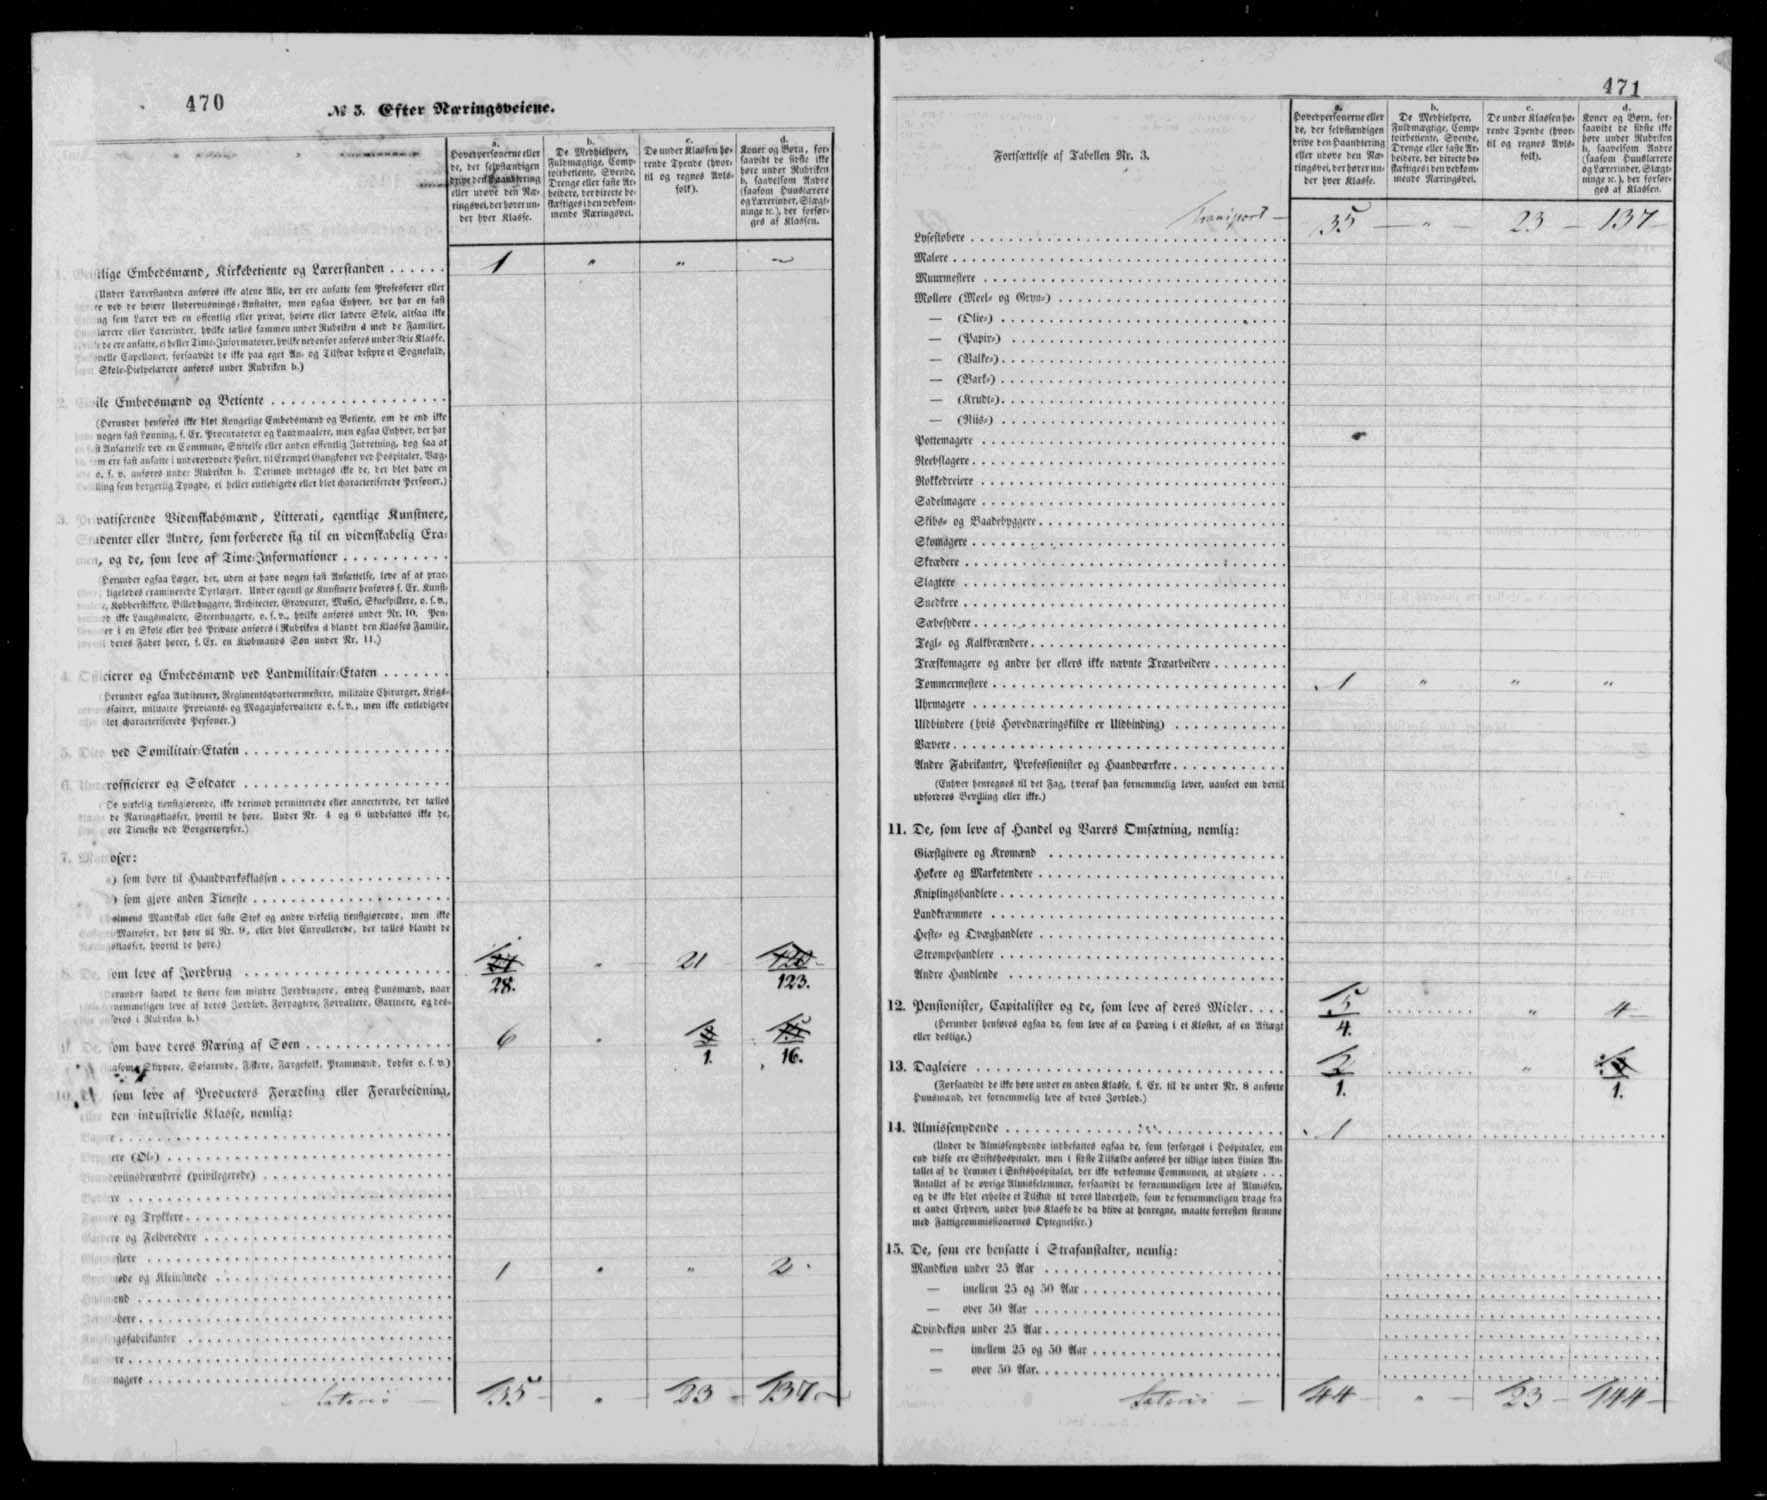 470
№ 3. Efter Næringsveiene.
a.
Hovedpersonerne eller
de, der selvstændigen
drive den Haandtering
eller udøve den Næ-
ringsvei, der hører un-
der hver Klasse.
b.
De Medhielpere,
Fuldmægtige, Comp-
toirbetiente, Svende,
Drenge eller faste Ar-
beidere, der directe be-
skæftiges i den vedkom-
mende Næringsvei.
c.
De under Klassen hø-
rende Tyende (hvor-
til og regnes Avls-
folk).
d.
Koner og Børn, for-
saavidt de sidste ikke
høre under Rubriken
b, saavelsom Andre
(saasom Huuslærere
og Lærerinder, Slægt-
ninge ɾc.), der forsør-
ges af Klassen.
1. Geistlige Embedsmænd, Kirkebetiente og Lærerstanden 1 " " ~
(Under Lærerstanden anføres ikke alene Alle, der ere ansatte som Professorer eller
ved de høiere Underviisnings-Anstalter, men ogsaa Enhver, der har en fast
som Lærer ved en offentlig eller privat, høiere eller lavere Skole, altsaa ikke
lærere eller Lærerinder, hvilke tælles sammen under Rubriken d med de Familier,
de ere ansatte, ei heller Time-Informatorer, hvilke nedenfor anføres under 3die Klasse.
Capellaner, forsaavidt de ikke paa eget An- og Tilsvar bestyre et Sognekald,
Skole-Hielpelærere anføres under Rubriken b.)
2. Civile Embedsmænd og Betiente
(Herunder henføres ikke blot Kongelige Embedsmænd og Betiente, om de end ikke
nogen fast Lønning, f. Ex. Procuratorer og Landmaalere, men ogsaa Enhver, der har
Ansættelse ved en Commune, Stiftelse eller anden offentlig Indretning, dog saa at
ere fast ansatte i underordnede Poster, til Exempel Gangkoner ved Hospitaler, Væg-
o. s. v. anføres under Rubriken b. Derimod medtages ikke de, der blot have en
som borgerlig Tyngde, ei heller entledigede eller blot characteriserede Personer.)
3. Privatiserende Videnskabsmænd, Litterati, egentlige Kunstnere,
Studenter eller Andre, som forberede sig til en videnskabelig Exa-
men, og de, som leve af Time-Informationer
(Herunder ogsaa Læger, der, uden at have nogen fast Ansættelse, leve af at prac-
ligeledes examinerede Dyrlæger. Under egentlige Kunstnere henføres f. Ex. Kunst-
Kobberstikkere, Billedhuggere, Architecter, Graveurer, Musici, Skuespillere, o. s. v.,
ikke Laugsmalere, Steenhuggere, o. s. v., hvilke anføres under Nr. 10. Pen-
i en Skole eller hos Private anføres i Rubriken d blandt den Klasses Familie,
deres Fader hører, f. Ex. en Kiøbmands Søn under Nr. 11.)
4. Officierer og Embedsmænd ved Landmilitair-Etaten
(Herunder ogsaa Auditeurer, Regimentsqvarteermestere, militaire Chirurger, Krigs-
militaire Proviants- og Magazinforvaltere o. s. v., men ikke entledigede
blot characteriserede Personer.)
5. Dito ved Sømilitair-Etaten
6. Underofficierer og Soldater
(De virkelig tienstgiørende, ikke derimod permitterede eller annecterede, der tælles
de Næringsklasser, hvortil de høre. Under Nr. 4 og 6 indbefattes ikke de,
Tieneste ved Borgercorpser.)
7. Matroser:
a) som høre til Haandværksklassen
b) som giøre anden Tieneste
(Holmens Mandskab eller faste Stok og andre virkelig tienstgiørende, men ikke
Matroser, der høre til Nr. 9, eller blot Enroullerede, der tælles blandt de
Næringsklasser, hvortil de høre.)
8. De, som leve af Jordbrug 28. " 21 123.
(Herunder saavel de større som mindre Jordbrugere, endog Huusmænd, naar
fornemmeligen leve af deres Jordlod, Forpagtere, Forvaltere, Gartnere, og des-
anføres i Rubriken b.)
9. De, som have deres Næring af Søen 6 " 1. 16.
(saasom Skippere, Søfarende, Fiskere, Færgefolk, Prammænd, Lodser o. s. v.)
10. De, som leve af Producters Forædling eller Forarbeidning,
eller den industrielle Klasse, nemlig:
Bagere
Bryggere (Øl-)
Brændeviinsbrændere (privilegerede)
Bødkere
Farvere og Trykkere
Garvere og Felberedere
Glarmestere
Grovsmede og Kleinsmede 1 " " 2
Kniplingsfabrikanter
Lateris 35 " 23 137
471
Fortsættelse af Tabellen Nr. 3.
a.
Hovedpersonerne eller
de, der selvstændigen
drive den Haandtering
eller udøve den Næ-
ringsvei, der hører un-
der hver Klasse.
b.
De Medhielpere,
Fuldmægtige, Comp-
toirbetiente, Svende,
Drenge eller faste Ar-
beidere, der directe be-
skæftiges i den vedkom-
mende Næringsvei.
c.
De under Klassen hø-
rende Tyende (hvor-
til og regnes Avls-
folk).
d.
Koner og Børn, for-
saavidt de sidste ikke
høre under Rubriken
b, saavelsom Andre
(saasom Huuslærere
og Lærerinder, Slægt-
ninge ɾc.), der forsør-
ges af Klassen.
Transport 35 " 23 137
Lysestøbere
Malere
Muurmestere
Møllere (Meel- og Gryn-)
— (Olie-)
— (Papir-)
— (Valke-)
— (Bark-)
— (Krudt-)
— (Riis-)
Pottemagere
Reebslagere
Rokkedreiere
Sadelmagere
Skibs- og Baadebyggere
Skomagere
Skrædere
Slagtere
Snedkere
Sæbesydere
Tegl- og Kalkbrændere
Træskomagere og andre her ellers ikke nævnte Træarbeidere
Tømmermestere 1 " " "
Uhrmagere
Uldbindere (hvis Hovednæringskilde er Uldbinding)
Vævere
Andre Fabrikanter, Professionister og Haandværkere
(Enhver henregnes til det Fag, hvoraf han fornemmelig lever, uanseet om dertil
udfordres Bevilling eller ikke.)
11. De, som leve af Handel og Varers Omsætning, nemlig:
Giæstgivere og Kromænd
Høkere og Marketendere
Kniplingshandlere
Landkræmmere
Heste- og Qvæghandlere
Strømpehandlere
Andre Handlende
12. Pensionister, Capitalister og de, som leve af deres Midler 5 4. " 4
(Herunder henføres ogsaa de, som leve af en Hæving i et Kloster, af en Aftægt
eller deslige.)
13. Dagleiere 2 1. " 1.
(Forsaavidt de ikke høre under en anden Klasse, f. Ex. til de under Nr. 8 anførte
Huusmænd, der fornemmelig leve af deres Jordlod.)
14. Almissenydende 1
(Under de Almissenydende indbefattes ogsaa de, som forsørges i Hospitaler, om
end disse ere Stiftshospitaler, men i sidste Tilfælde anføres her tillige inden Linien An-
tallet af de Lemmer i Stiftshospitalet, der ikke vedkomme Communen, at udgiøre . . .
Antallet af de øvrige Almisselemmer, forsaavidt de fornemmeligen leve af Almissen,
og de ikke blot erholde et Tilskud til deres Underhold, som de fornemmeligen drage fra
et andet Erhverv, under hvis Klasse de da blive at henregne, maatte forresten stemme
med Fattigcommissionernes Optegnelser.)
15. De, som ere hensatte i Strafanstalter, nemlig:
Mandkiøn under 25 Aar
— imellem 25 og 50 Aar
— over 50 Aar
Qvindekiøn under 25 Aar
— imellem 25 og 50 Aar
— over 50 Aar.
Lateris 44 " 23 144